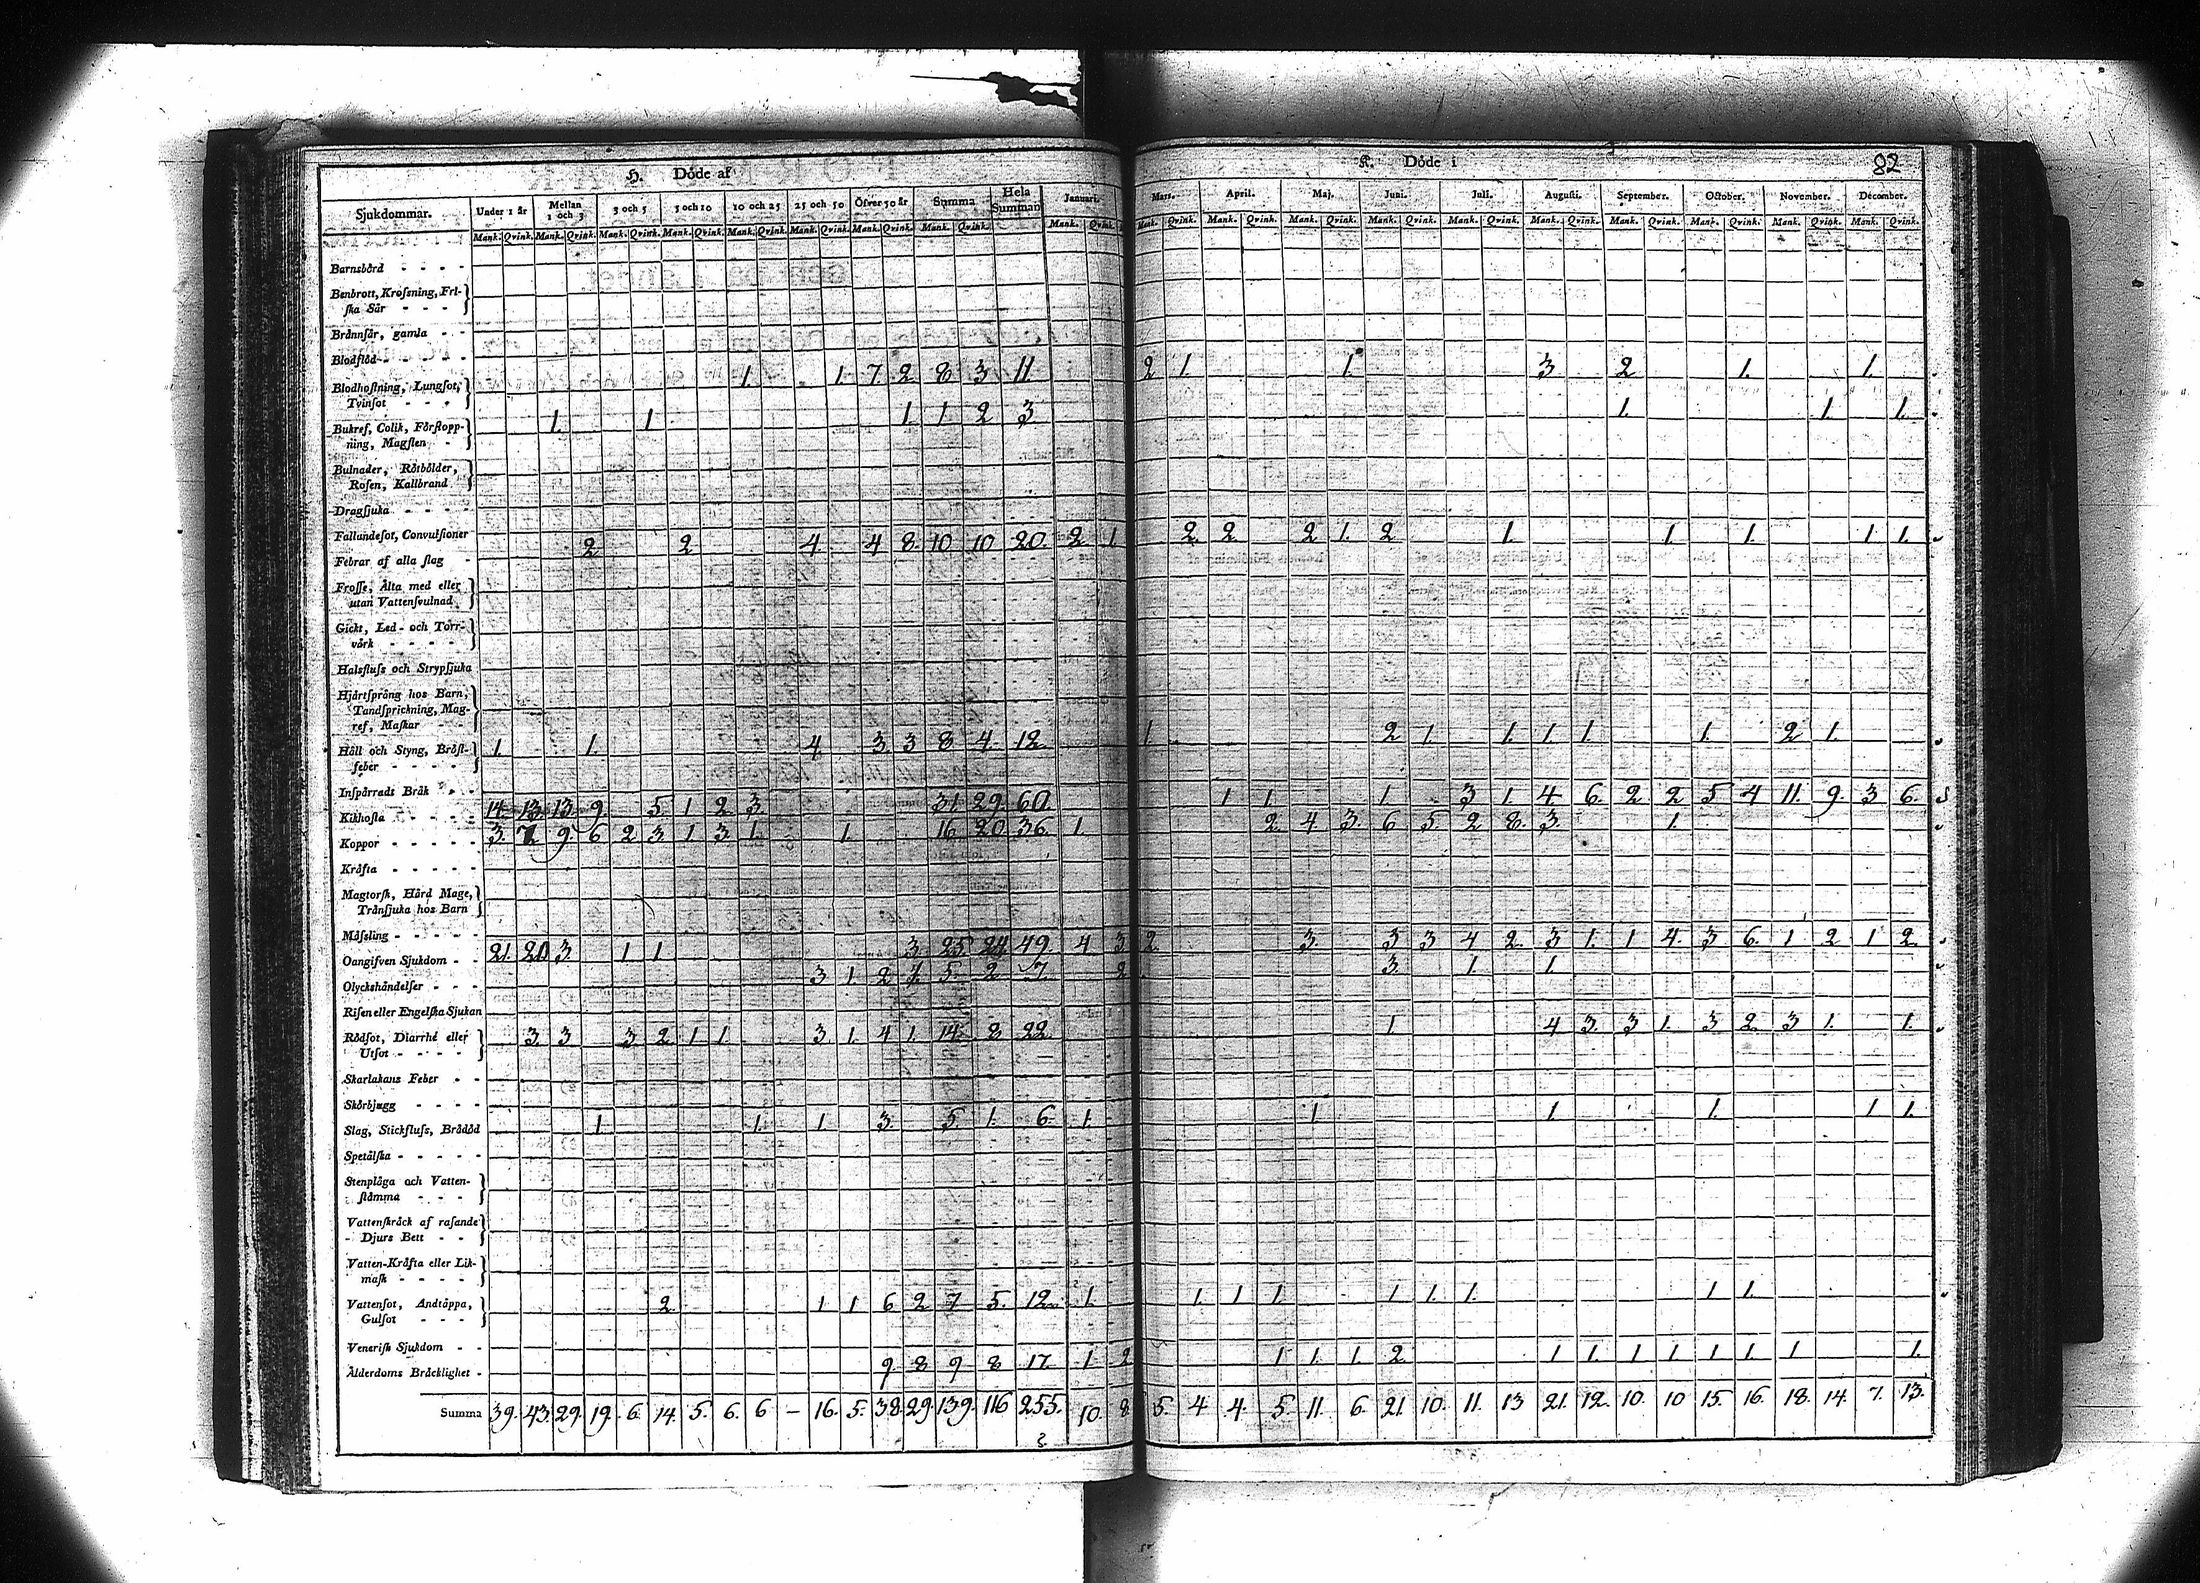 H. Döde af
K. Döde i
82
Sjukdommar. Under 1 år Mellan 1 och 3 3 och 5 5 och 10 10 och 25 25 och 50 Öfver 50 år Summa Hela Summan Januari. Mars. April. Maj. Juni. Juli. Augusti. September. October. November. December.
Mank. Qvink. Mank. Qvink. Mank. Qvink. Mank. Qvink. Mank. Qvink. Mank. Qvink. Mank. Qvink. Mank. Qvink. Mank. Qvink. Mank. Qvink. Mank. Qvink. Mank. Qvink. Mank. Qvink. Mank. Qvink. Mank. Qvink. Mank. Qvink. Mank. Qvink. Mank. Qvink. Mank. Qvink.
Barnsbörd
Benbrott, Krossning, Fri-
ska Sår
Brännsår, gamla
Blodflöd
Blodhostning, Lungsot, 1. 1. 7. 2. 8. 3. 11. 2 1. 1. 3 2 1. 1.
Tvinsot
Bukref, Colik, Förstopp- 1. 1 1. 1. 2 3. 1. 1. 1.
ning, Magsten
Bulnader, Rötbölder,
Rosen, Kallbrand
Dragsjuka
Fallandesot, Convulsioner
Febrar af alla slag 2 2 4 4 8. 10 10 20. 2 1. 2. 2. 2 1. 2 1. 1. 1. 1 1.
Frosse, Älta med eller
utan Vattensvulnad
Gickt, Led- och Torr-
värk
Halsfluss och Strypsjuka
Hjärtspräng hos Barn,
Tandsprickning, Mag-
ref, Maskar
Håll och Styng, Bröst- 1. 1. 4. 3 3 8 4. 12. 1 2 1. 1. 1. 1. 1. 2 1.
feber
Inspärradt Bråk
Kikhosta 14. 13. 13. 9. 5. 1 2. 3. 31. 29. 60. 1 1. 1 3 1. 4 6. 2 2 5 4 11. 9. 3 6.
Koppor 3. 7 9. 6 2 3. 1 3 1. 1. 16. 20 36. 1. 2. 4. 3. 6 5. 2 8. 3. 1.
Kräfta
Magtorsk, Hård Mage,
Tränsjuka hos Barn
Mässling
Oangifven Sjukdom 21. 20. 3. 1 1 3. 25. 24. 49. 4 3 2. 3. 3 3 4 2. 3 1. 1 4. 3 6. 1 2 1 2.
Olyckshändelser 3 1. 2 1. 5. 2 7. 2 3. 1. 1.
Risen eller Engelska Sjukan
Rödsot, Diarrhé eller 3. 3. 3 2 1 1. 3. 1. 4 1. 14. 8 22. 1 4 3. 3 1. 3 2. 3 1. 1.
Utsot
Skarlakans Feber
Skörbjugg
Slag, Stickfluss, Brådöd 1. 1. 1. 3. 5. 1. 6. 1. 1. 1. 1. 1 1.
Spetälska
Stenplåga och Vatten-
stämma
Vattenskräck af rasande
Djurs Bett
Vatten-Kräfta eller Lik-
mask
Vattensot, Andtäppa, 2 1 1 6 2 7. 5. 12. 1. 1. 1 1. 1 1. 1. 1 1.
Gulsot
Venerisk Sjukdom
Ålderdoms Bräcklighet 9. 8 9 8 17. 1 2 1 1. 1. 2 1 1. 1 1 1 1. 1 1.
Summa 39. 43. 29. 19. 6. 14. 5. 6. 6 – 16. 5. 38. 29. 139. 116 255. 10. 8. 5. 4 4. 5. 11. 6. 21. 10. 11. 13 21. 12. 10. 10 15. 16. 18. 14. 7. 13.